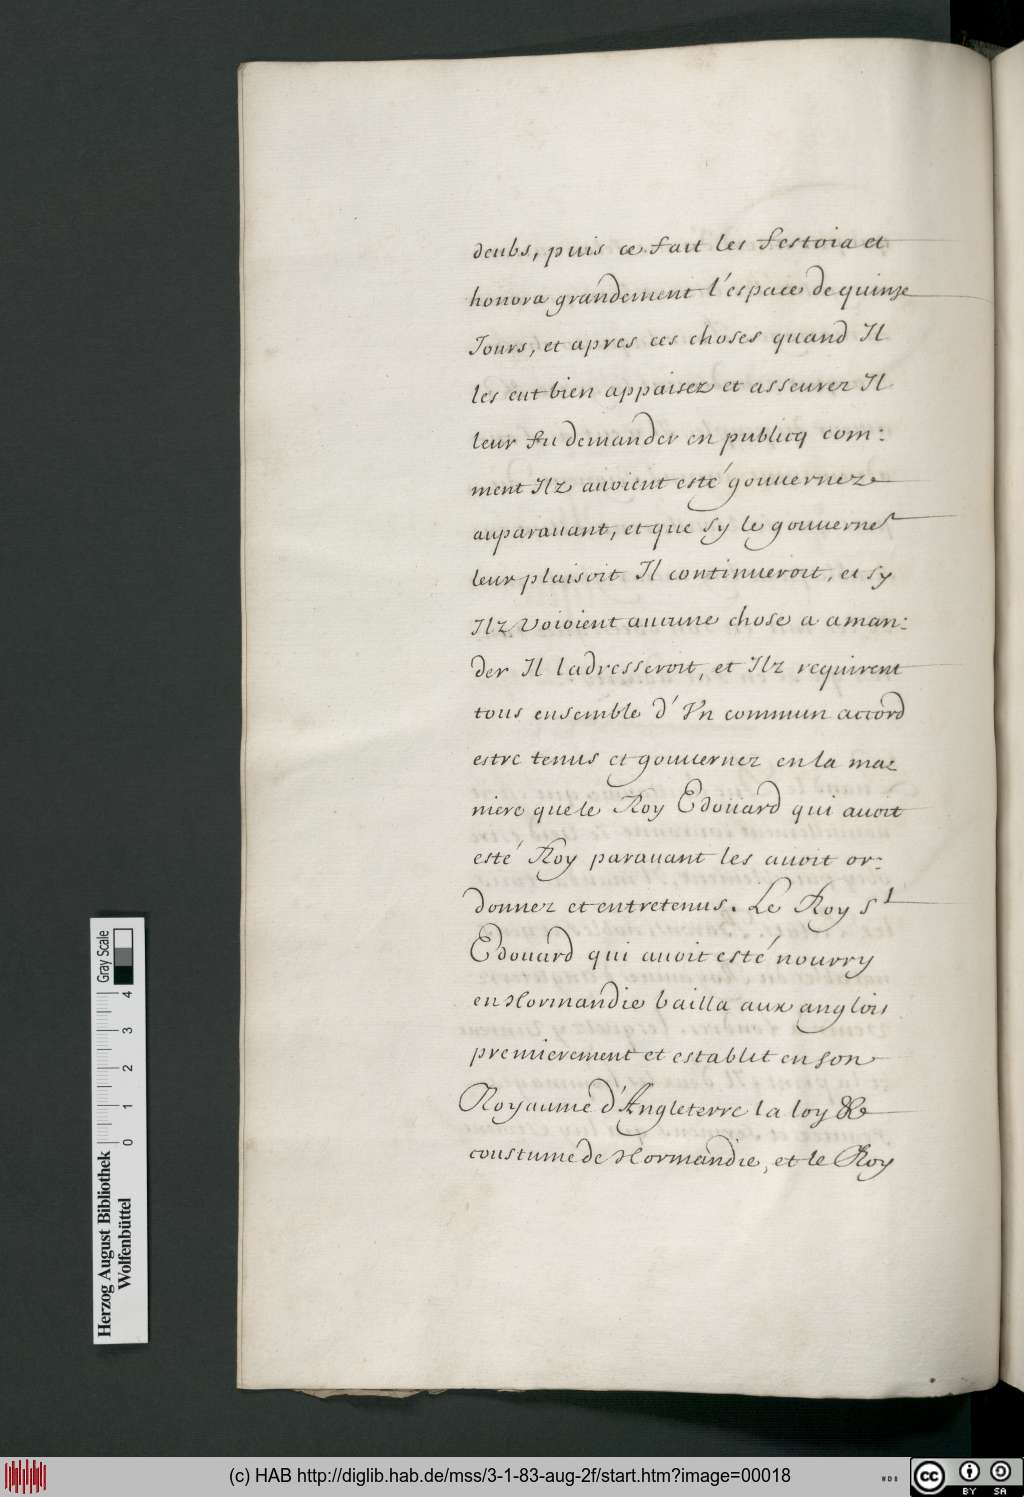 deubs, puis ce fait les festoia et
honora grandement l'espace de quinze
Jours, et apres ces choses quand Il
les eut bien appaisez et asseurez Il
leur fu demander en publicq com:
ment Ilz auoient esté gouuernez
auparauant, et que sy le gouuerne^t
leur plaisoit Il continueroit, et sy
Ilz Voioient aucune chose a aman:
der Il ladresseroit, et Ilz requirent
tous ensemble d'Vn commun accord
estre tenus et gouuernez en la ma:
niere que le Roy Edouard qui auoit
esté Roy parauant les auoit or:
donnez et entretenus. Le Roy S^t
Edouard qui auoit esté nourry
en Normandie bailla aux anglois
premierement et establit en son
Royaume d'Angleterre la loy &
coustume de Normandie, et le Roy
Herzog August Bibliothek
Wolfenbüttel
0 1 2 3 4
Gray Scale
(c) HAB http://diglib.hab.de/mss/3-1-83-aug-2f/start.htm?image=00018
WDB
cc BY SA